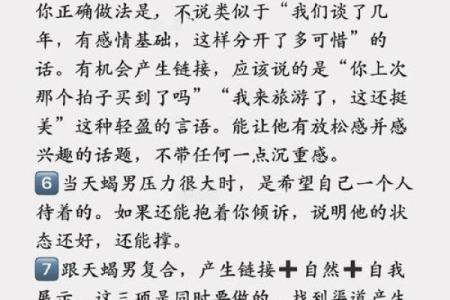 你正确做法是，不说类似于“我们谈了几
年，有感情基础，这样分开了多可惜”的
话。有机会产生链接，应该说的是“你上次
那个拍子买到了吗”“我来旅游了，这还挺
美”这种轻盈的言语。能让他有放松感并感
兴趣的话题，不带任何一点沉重感。
6️⃣当天蝎男压力很大时，是希望自己一个人
待着的。如果还能抱着你倾诉，说明他的状
态还好，还能撑。
7️⃣跟天蝎男复合，产生链接➕自然➕自我
展示，这三项是同时要做的，找到渠道产生